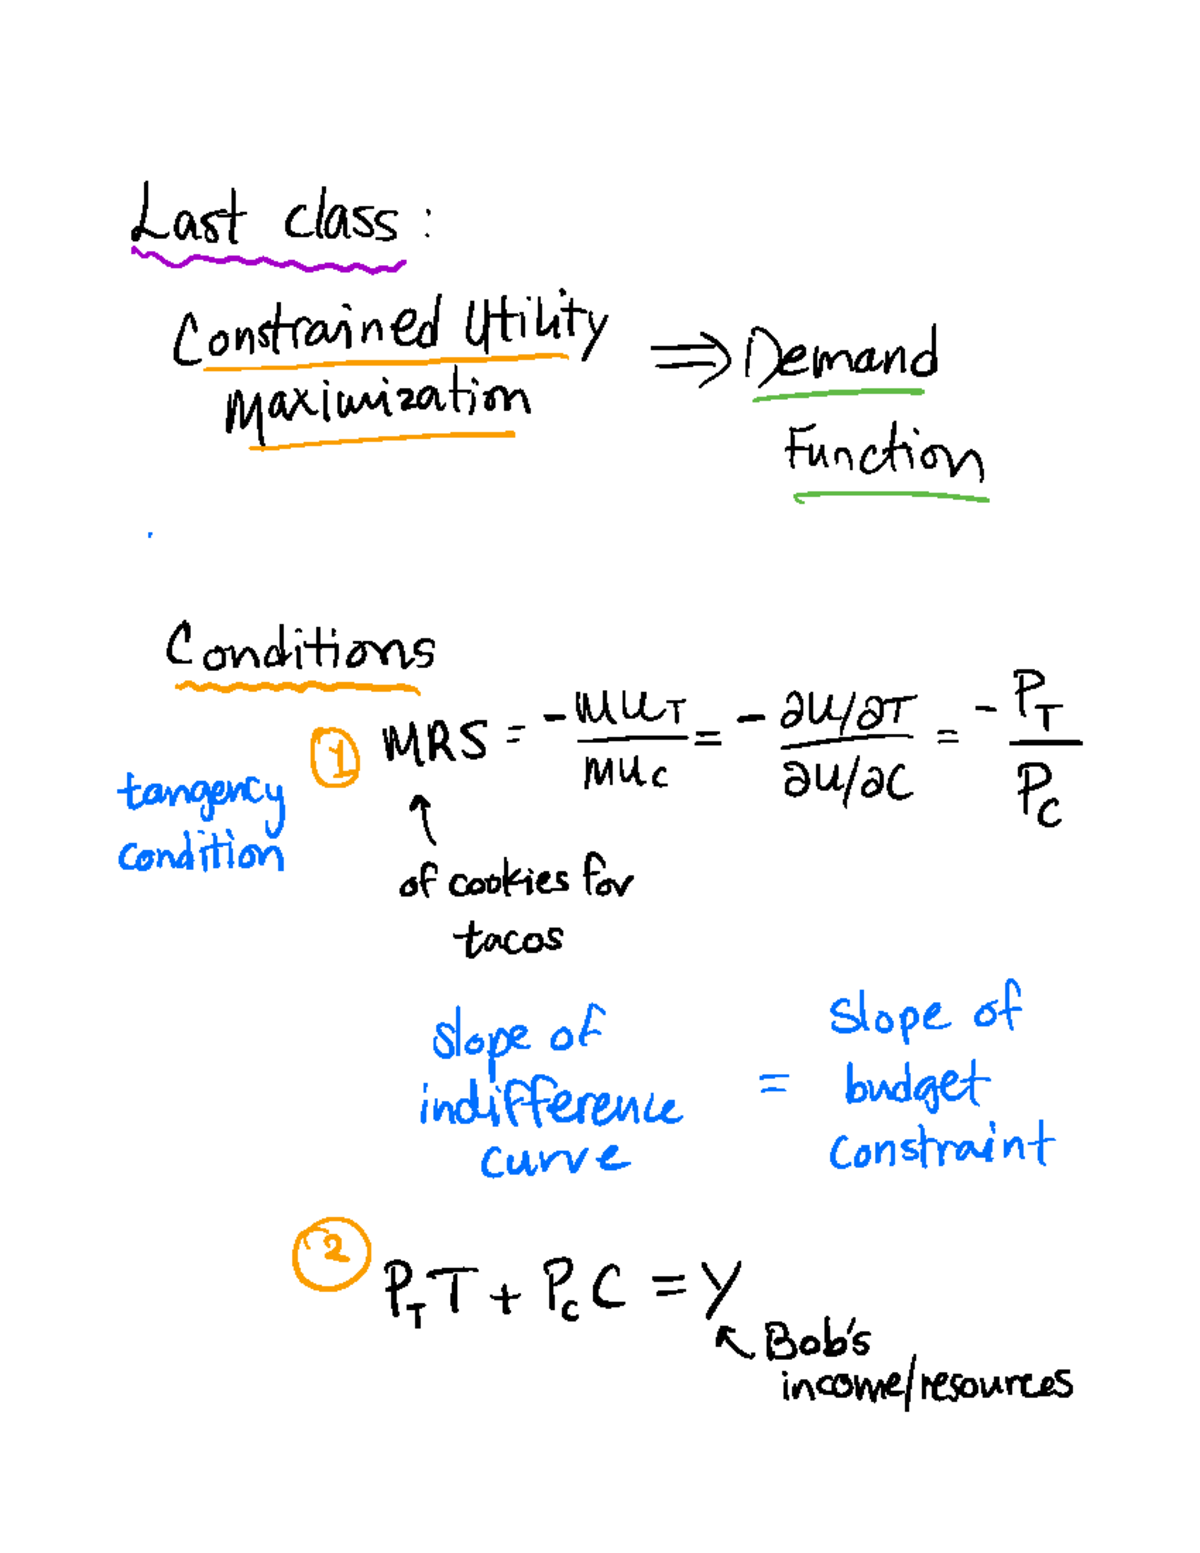 Last class:
Constrained Utility
Maximization
⇒ Demand
Function
Conditions
① MRS = -MU_T/MU_C = - ∂U/∂T / ∂U/∂C = - P_T/P_C
tangency
condition
↑
of cookies for
tacos
slope of
indifference
curve
=
slope of
budget
constraint
② P_T T + P_C C = Y
↖ Bob's
income/resources